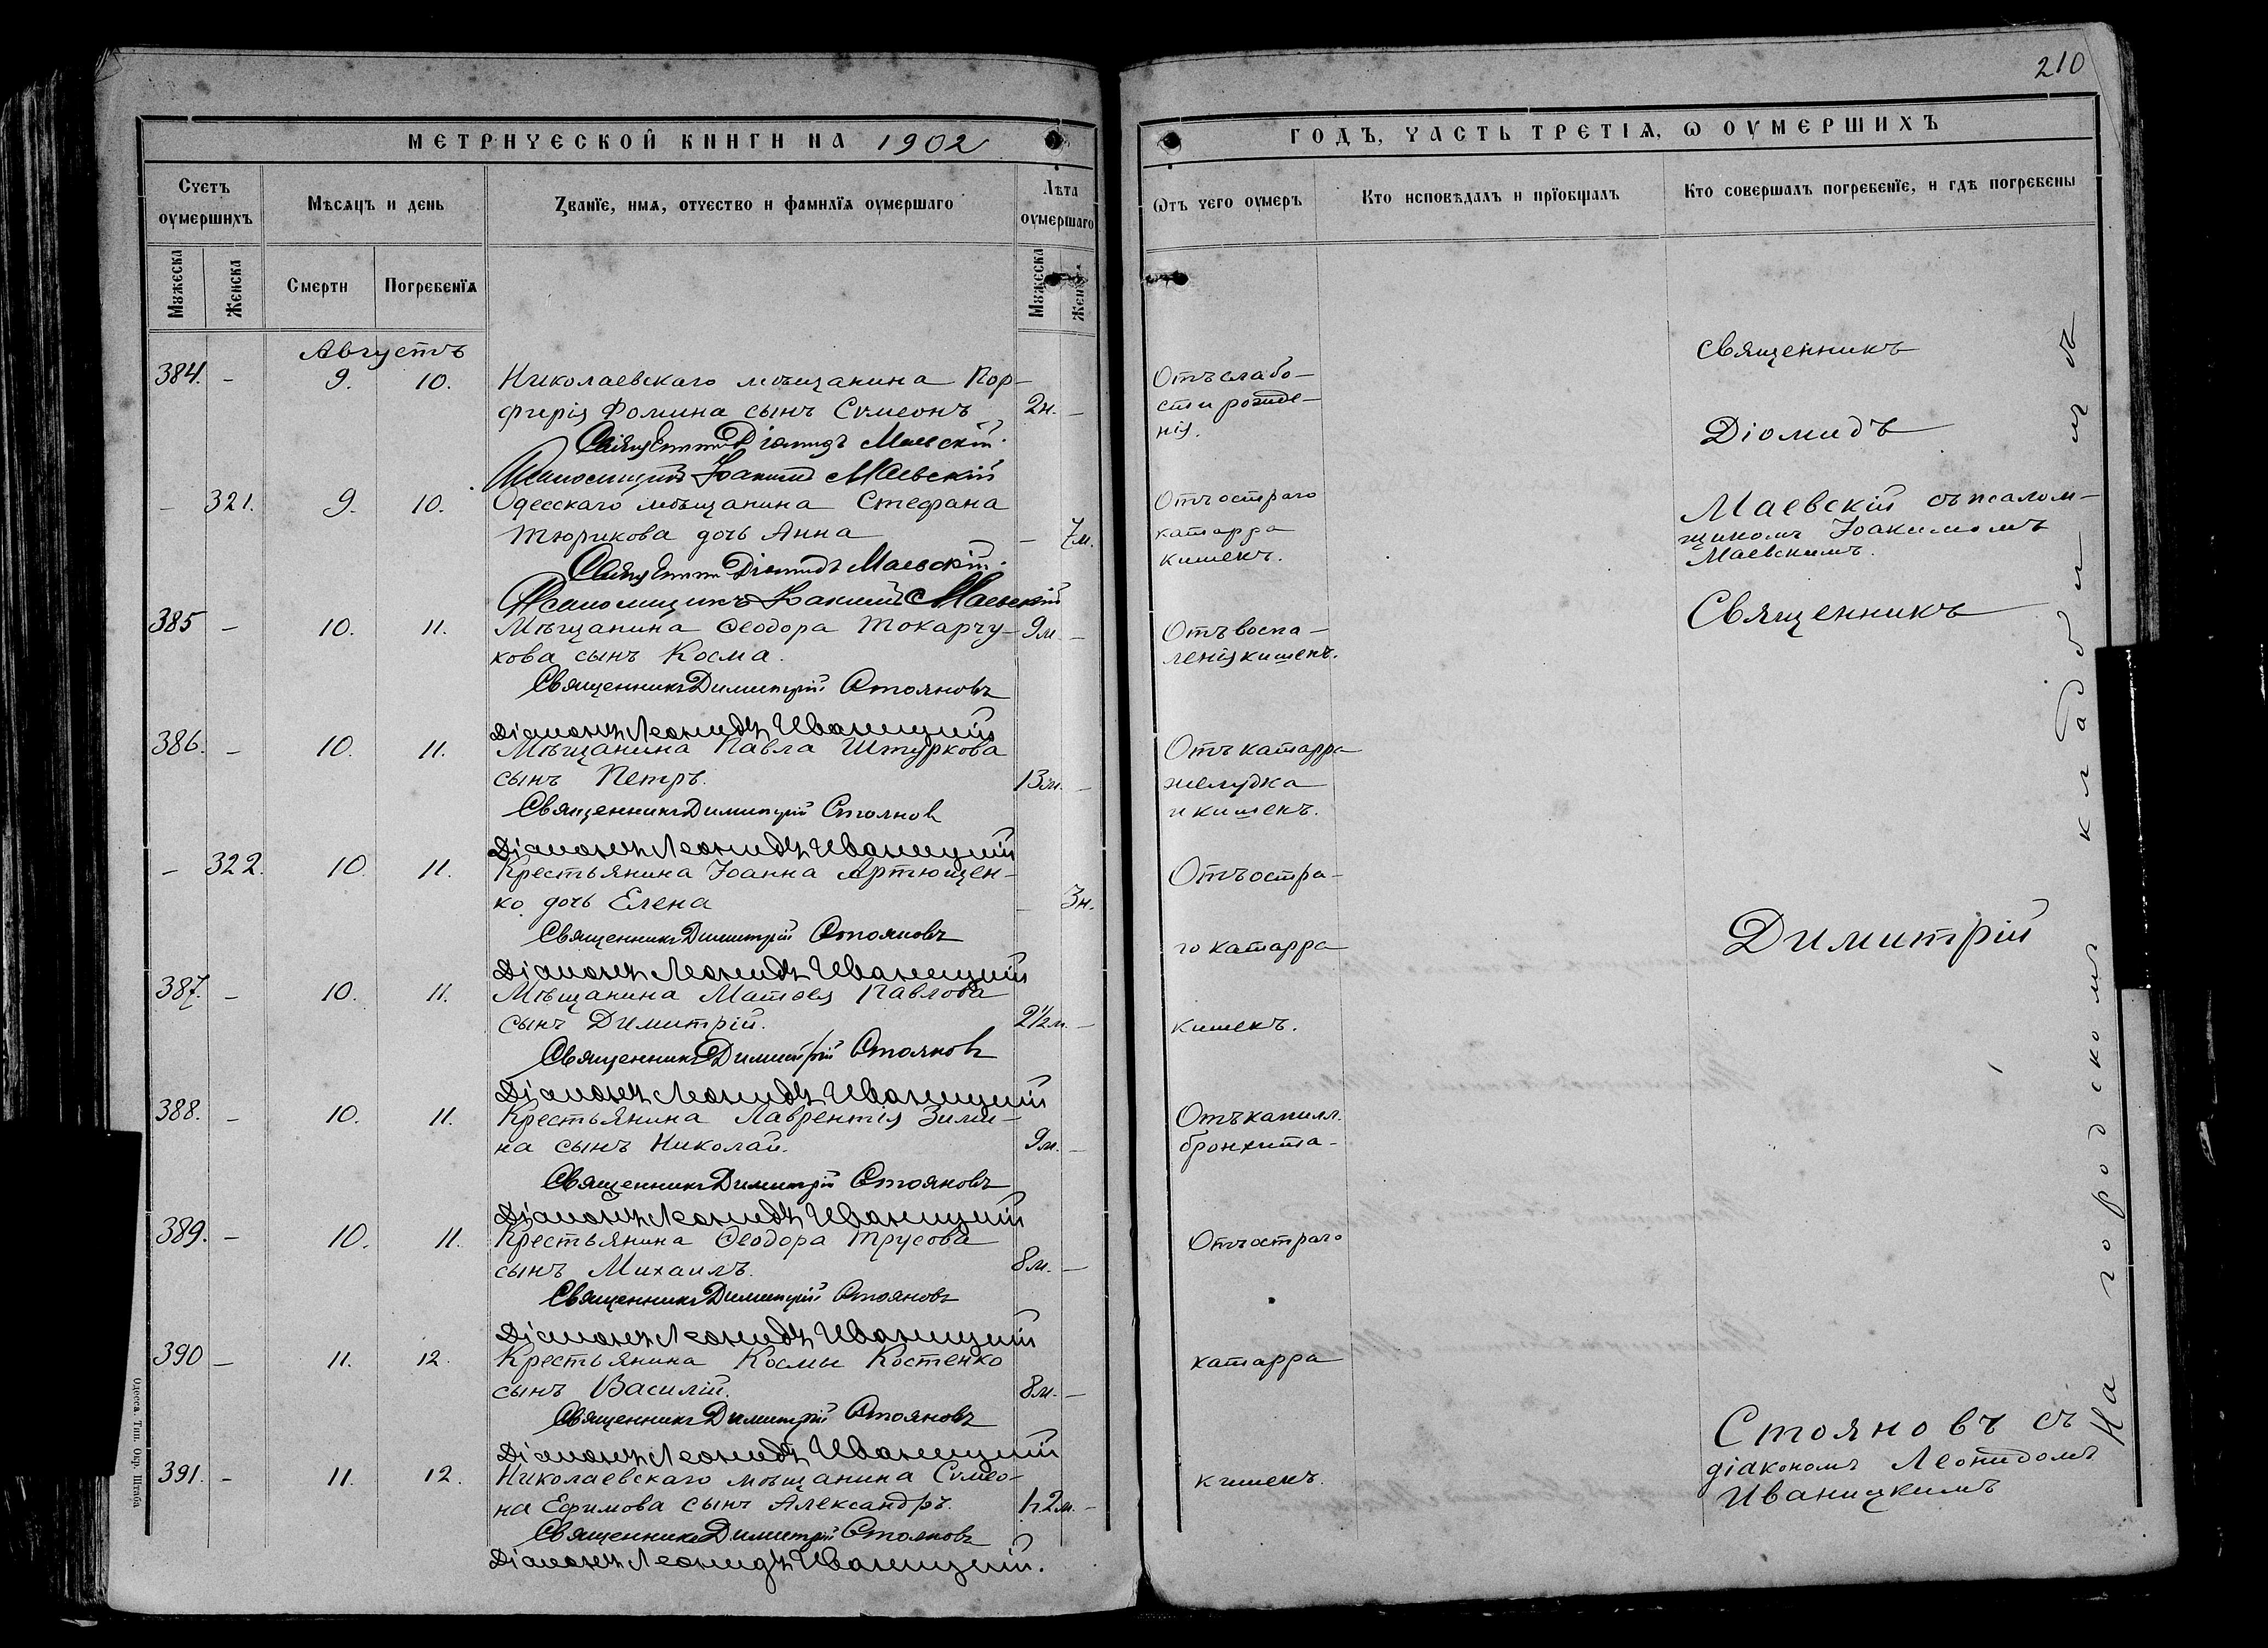 210
МЕТРИЧЕСКОЙ КНИГИ НА 1902
ГОДЪ, ЧАСТЬ ТРЕТІѦ, Ѡ ОУМЕРШИХЪ
Счетъ оумершихъ
Мѣсяцъ и день
Званїе, имѧ, отчество и фамилїѧ оумершаго
Лѣта оумершаго
Ѿтъ чего оумеръ
Кто исповѣдалъ и прїобщалъ
Кто совершалъ погребенїе, и гдѣ погребены
Мꙋжеска
Женска
Смерти
Погребенїѧ
Мꙋжеска
Женс.
Августъ
384. - 9. 10. Николаевскаго мѣщанина Пор-
фирія Фомина сынъ Сѵмеонъ 2н. -
Священникъ Діомидъ Маевскій.
Псаломщикъ Іоакимъ Маевскій
- 321. 9. 10. Одесскаго мѣщанина Стефана
Тюрикова дочь Анна - 7м.
Священникъ Діомидъ Маевскій.
Псаломщикъ Іоакимъ Маевскій
385 - 10. 11. Мѣщанина Ѳеодора Токарчу- 9м. -
кова сынъ Косма.
Священникъ Димитрій Стояновъ
Діаконъ Леонидъ Иваницкій
386. - 10. 11. Мѣщанина Павла Штуркова
сынъ Петръ. 13м. -
Священникъ Димитрій Стоянов
Діаконъ Леонидъ Иваницкій
- 322. 10. 11. Крестьянина Іоанна Артющен-
ко дочь Елена - 3н.
Священникъ Димитрій Стояновъ
Діаконъ Леонидъ Иваницкій
387. - 10. 11. Мѣщанина Матѳея Павлова
сынъ Димитрій. 2½м. -
Священникъ Димитрій Стояновъ
Діаконъ Леонидъ Иваницкій
388. - 10. 11. Крестьянина Лаврентія Зими-
на сынъ Николай. 9м. -
Священникъ Димитрій Стояновъ
Діаконъ Леонидъ Иваницкій
389. - 10. 11. Крестьянина Ѳеодора Трусова
сынъ Михаилъ. 8м. -
Священникъ Димитрій Стояновъ
Діаконъ Леонидъ Иваницкій
390 - 11. 12. Крестьянина Космы Костенко
сынъ Василій. 8м. -
Священникъ Димитрій Стояновъ
Діаконъ Леонидъ Иваницкій
391. - 11. 12. Николаевскаго мѣщанина Сѵмео-
на Ефимова сынъ Александръ. -
Священникъ Димитрій Стояновъ
Діаконъ Леонидъ Иваницкій.
Одесса. Тип. Окр. Штаба
Отъ слабо-
сти рожде-
нія.
Отъ остраго
катарра
кишекъ.
Отъ воспа-
ленія кишекъ.
Отъ катарра
желудка
и кишекъ.
Отъ остра-
го катарра
кишекъ.
Отъ капилл.
бронхита-
Отъ остраго
катарра
кишекъ.
Священникъ
Діомидъ
Маевскій съ псалом-
щикомъ Іоакимомъ
Маевскимъ.
Священникъ
Димитрій
Стояновъ съ
діакономъ Леонидомъ
Иваницкимъ
На городскомъ кладбищѣ